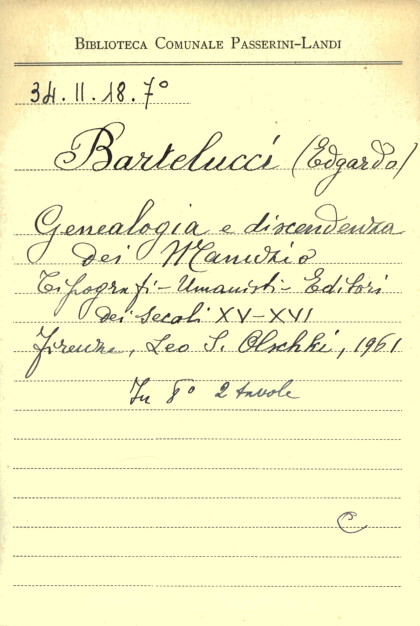 BIBLIOTECA COMUNALE PASSERINI-LANDI
34.II.18.7°
Bartelucci (Edgardo)
Genealogia e discendenza
dei Manuzio
Tipografi-Umanisti-Editori
dei secoli XV-XVI
Firenze, Leo S. Olschki, 1961
In 8° 2 tavole
C